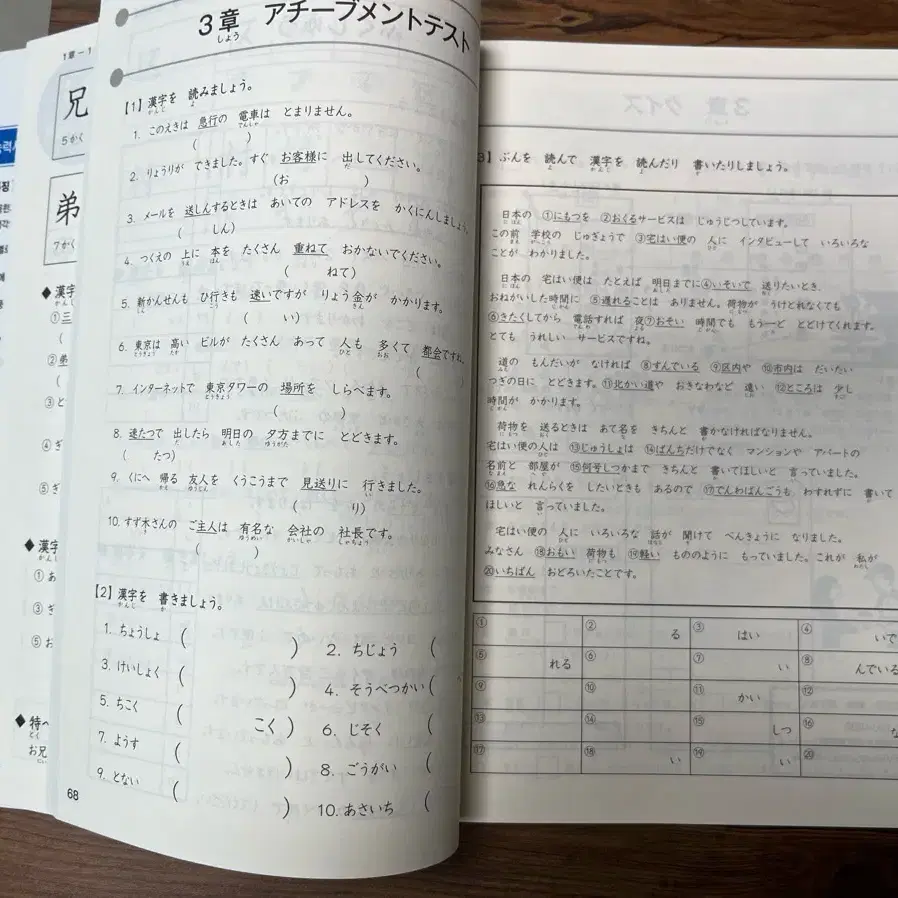 3章 アチーブメントテスト
しょう
【1】漢字を 読みましょう。
かんじ よ
1. このえきは 急行の 電車は とまりません。
でんしゃ
( )
2. りょうりが できました。すぐ お客様に 出してください。
だ
(お )
3. メールを 送しんするときは あいての アドレスを かくにんしましょう。
( しん)
4. つくえの 上に 本を たくさん 重ねて おかないでください。
うえ ほん
( ねて)
5. 新かんせんも ひ行きも 速いですが りょう金が かかります。
しん こう きん
( い)
6. 東京は 高い ビルが たくさん あって 人も 多くて 都会ですね。
とうきょう たか ひと おお
( )
7. インターネットで 東京タワーの 場所を しらべます。
とうきょう
( )
8. 速たつで 出したら 明日の 夕方までに とどきます。
だ あした ゆうがた
( たつ)
9. くにへ 帰る 友人を くうこうまで 見送りに 行きました。
かえ ゆうじん い
( り)
10. すず木さんの ご主人は 有名な 会社の 社長です。
き ゆうめい かいしゃ しゃちょう
( )
【2】漢字を 書きましょう。
かんじ か
1. ちょうしょ ( )
2. ちじょう (
3. けいしょく ( )
4. そうべつかい (
5. ちこく ( こく)
6. じそく (
7. ようす ( )
8. ごうがい (
9. とない ( )
10. あさいち (
68
3】ぶんを 読んで 漢字を 読んだり 書いたりしましょう。
よ かんじ よ か
日本の ①にもつを ②おくるサービスは じゅうじつしています。
にほん
この前 学校の じゅぎょうで ③宅はい便の 人に インタビューして いろいろな
まえ がっこう ひと
ことが わかりました。
日本の 宅はい便は たとえば 明日までに④いそいで 送りたいとき、
おねがいした時間に ⑤遅れることは ありません。荷物が うけとれなくても
⑥きたくしてから 電話すれば 夜⑦おそい 時間でも もう一ど とどけてくれます。
とても うれしい サービスですね。
道の もんだいが なければ ⑧すんでいる ⑨区内や ⑩市内は だいたい
つぎの日に とどきます。⑪北かい道や おきなわなど 遠い ⑫ところは 少し
時間が かかります。
荷物を 送るときは あて名を きちんと 書かなければなりません。
宅はい便の人は ⑬じゅうしょは ⑭ばんちだけでなく マンションや アパートの
名前と 部屋が ⑮何号しつかまで きちんと 書いてほしいと 言っていました。
⑯急な れんらくを したいときも あるので ⑰でんわばんごうも わすれずに 書いて
ほしいと 言っていました。
宅はい便の 人に いろいろな 話が 聞けて べんきょうに なりました。
みなさん ⑱おもい 荷物も ⑲軽い もののように もっていました。これが 私が
⑳いちばん おどろいたことです。
① ② る ③ はい ④ いで
⑤ れる ⑥ ⑦ い ⑧ んでいる
⑨ ⑩ ⑪ かい ⑫
⑬ ⑭ ⑮ しつ ⑯ な
⑰ ⑱ い ⑲ い ⑳
1章
兄
5かく
弟
7かく
◆漢字
①三
②弟
③と
④ぎ
⑤ぎ
◆漢字
①あ
③ぎ
⑤お
◆特
とく
お兄
にい